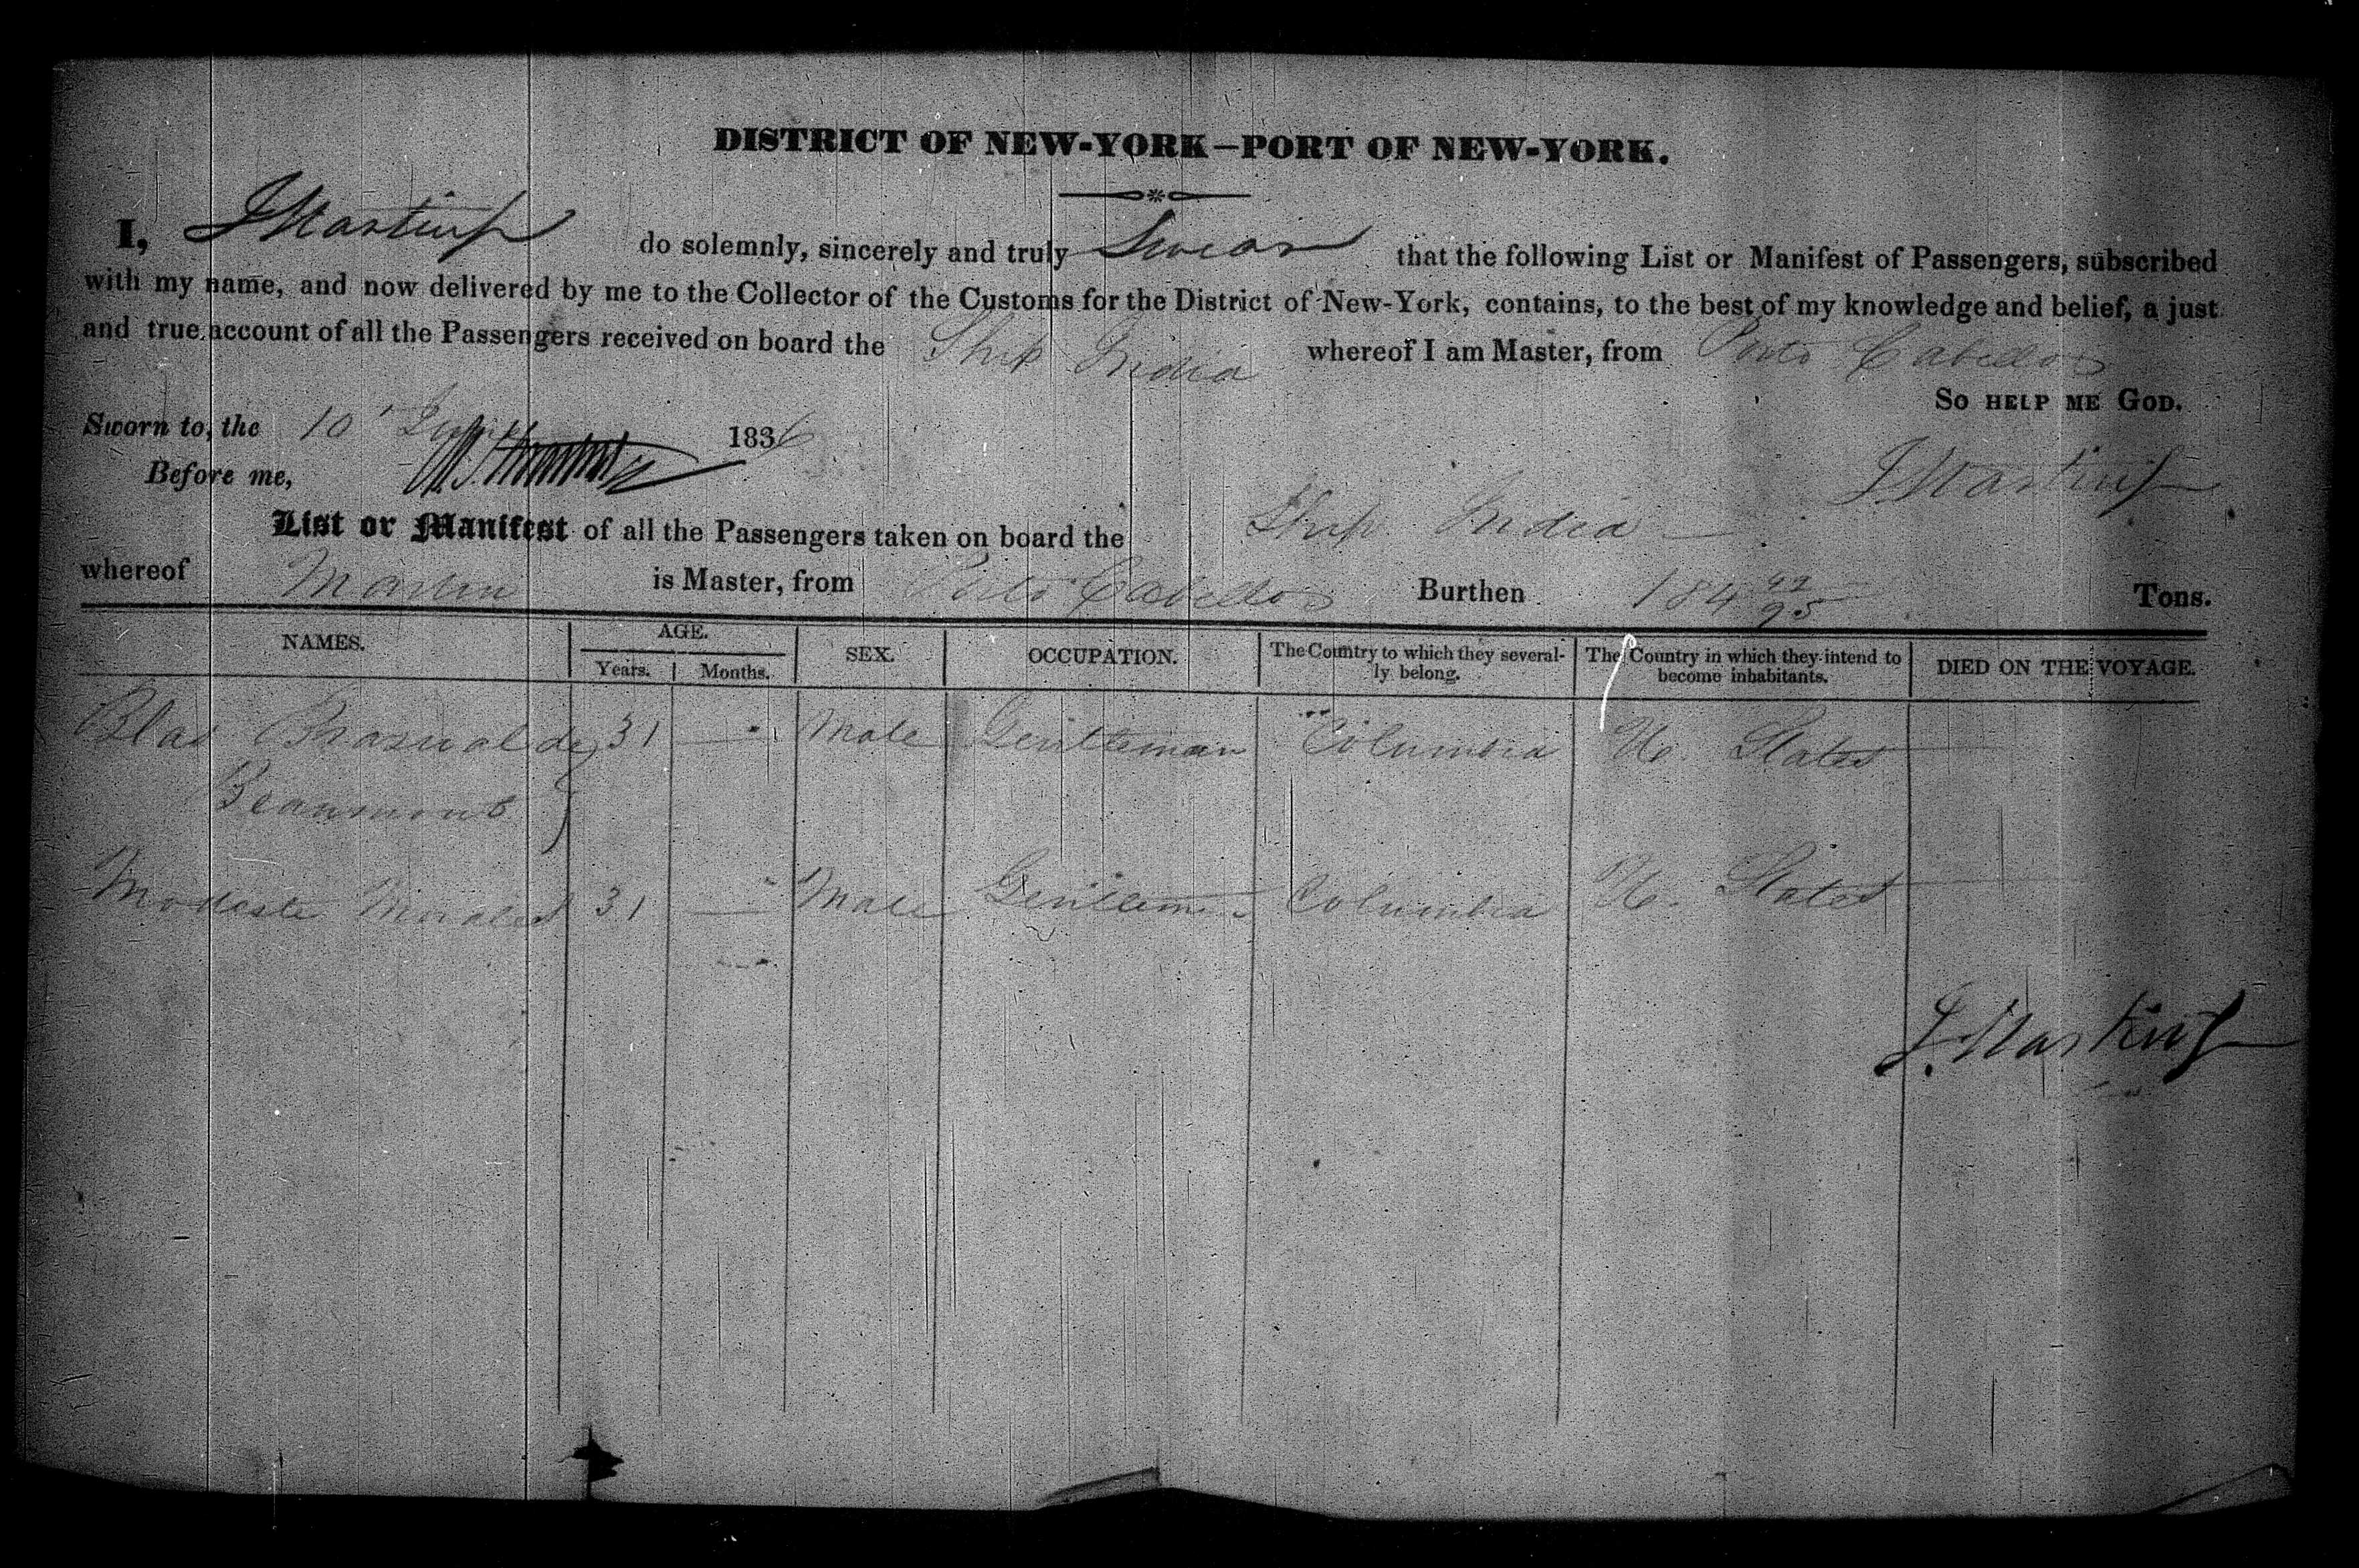 DISTRICT OF NEW-YORK—PORT OF NEW-YORK.
I, do solemnly, sincerely and truly Swear that the following List or Manifest of Passengers, subscribed
with my name, and now delivered by me to the Collector of the Customs for the District of New-York, contains, to the best of my knowledge and belief, a just
and true account of all the Passengers received on board the Ship India whereof I am Master, from Porto Cabello
So HELP ME GOD.
Sworn to, the 10 1836
Before me,
List or Manifest of all the Passengers taken on board the Ship India
whereof Martin is Master, from Porto Cabello Burthen 184 Tons.
NAMES. AGE. SEX. OCCUPATION. The Country to which they several- The Country in which they intend to DIED ON THE VOYAGE.
Years. Months. ly belong. become inhabitants.
Blas de 31 Male Gentleman Columbia U. States
Beaumont
Modeste Morales 31 Male Gentleman Columbia U. States